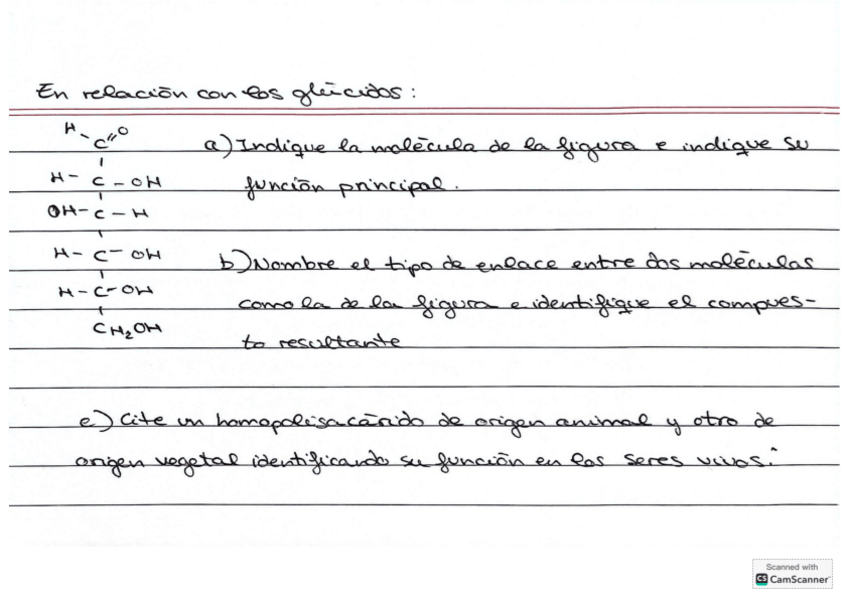 En relación con los glúcidos:
H
C=O
a) Indique la molécula de la figura e indique su
H - C - OH
función principal.
OH - C - H
H - C - OH
b) Nombre el tipo de enlace entre dos moléculas
H - C - OH
como la de la figura e identifique el compues-
CH₂OH
to resultante
c) Cite un homopolisacárido de origen animal y otro de
origen vegetal identificando su función en los seres vivos.
Scanned with
CS CamScanner